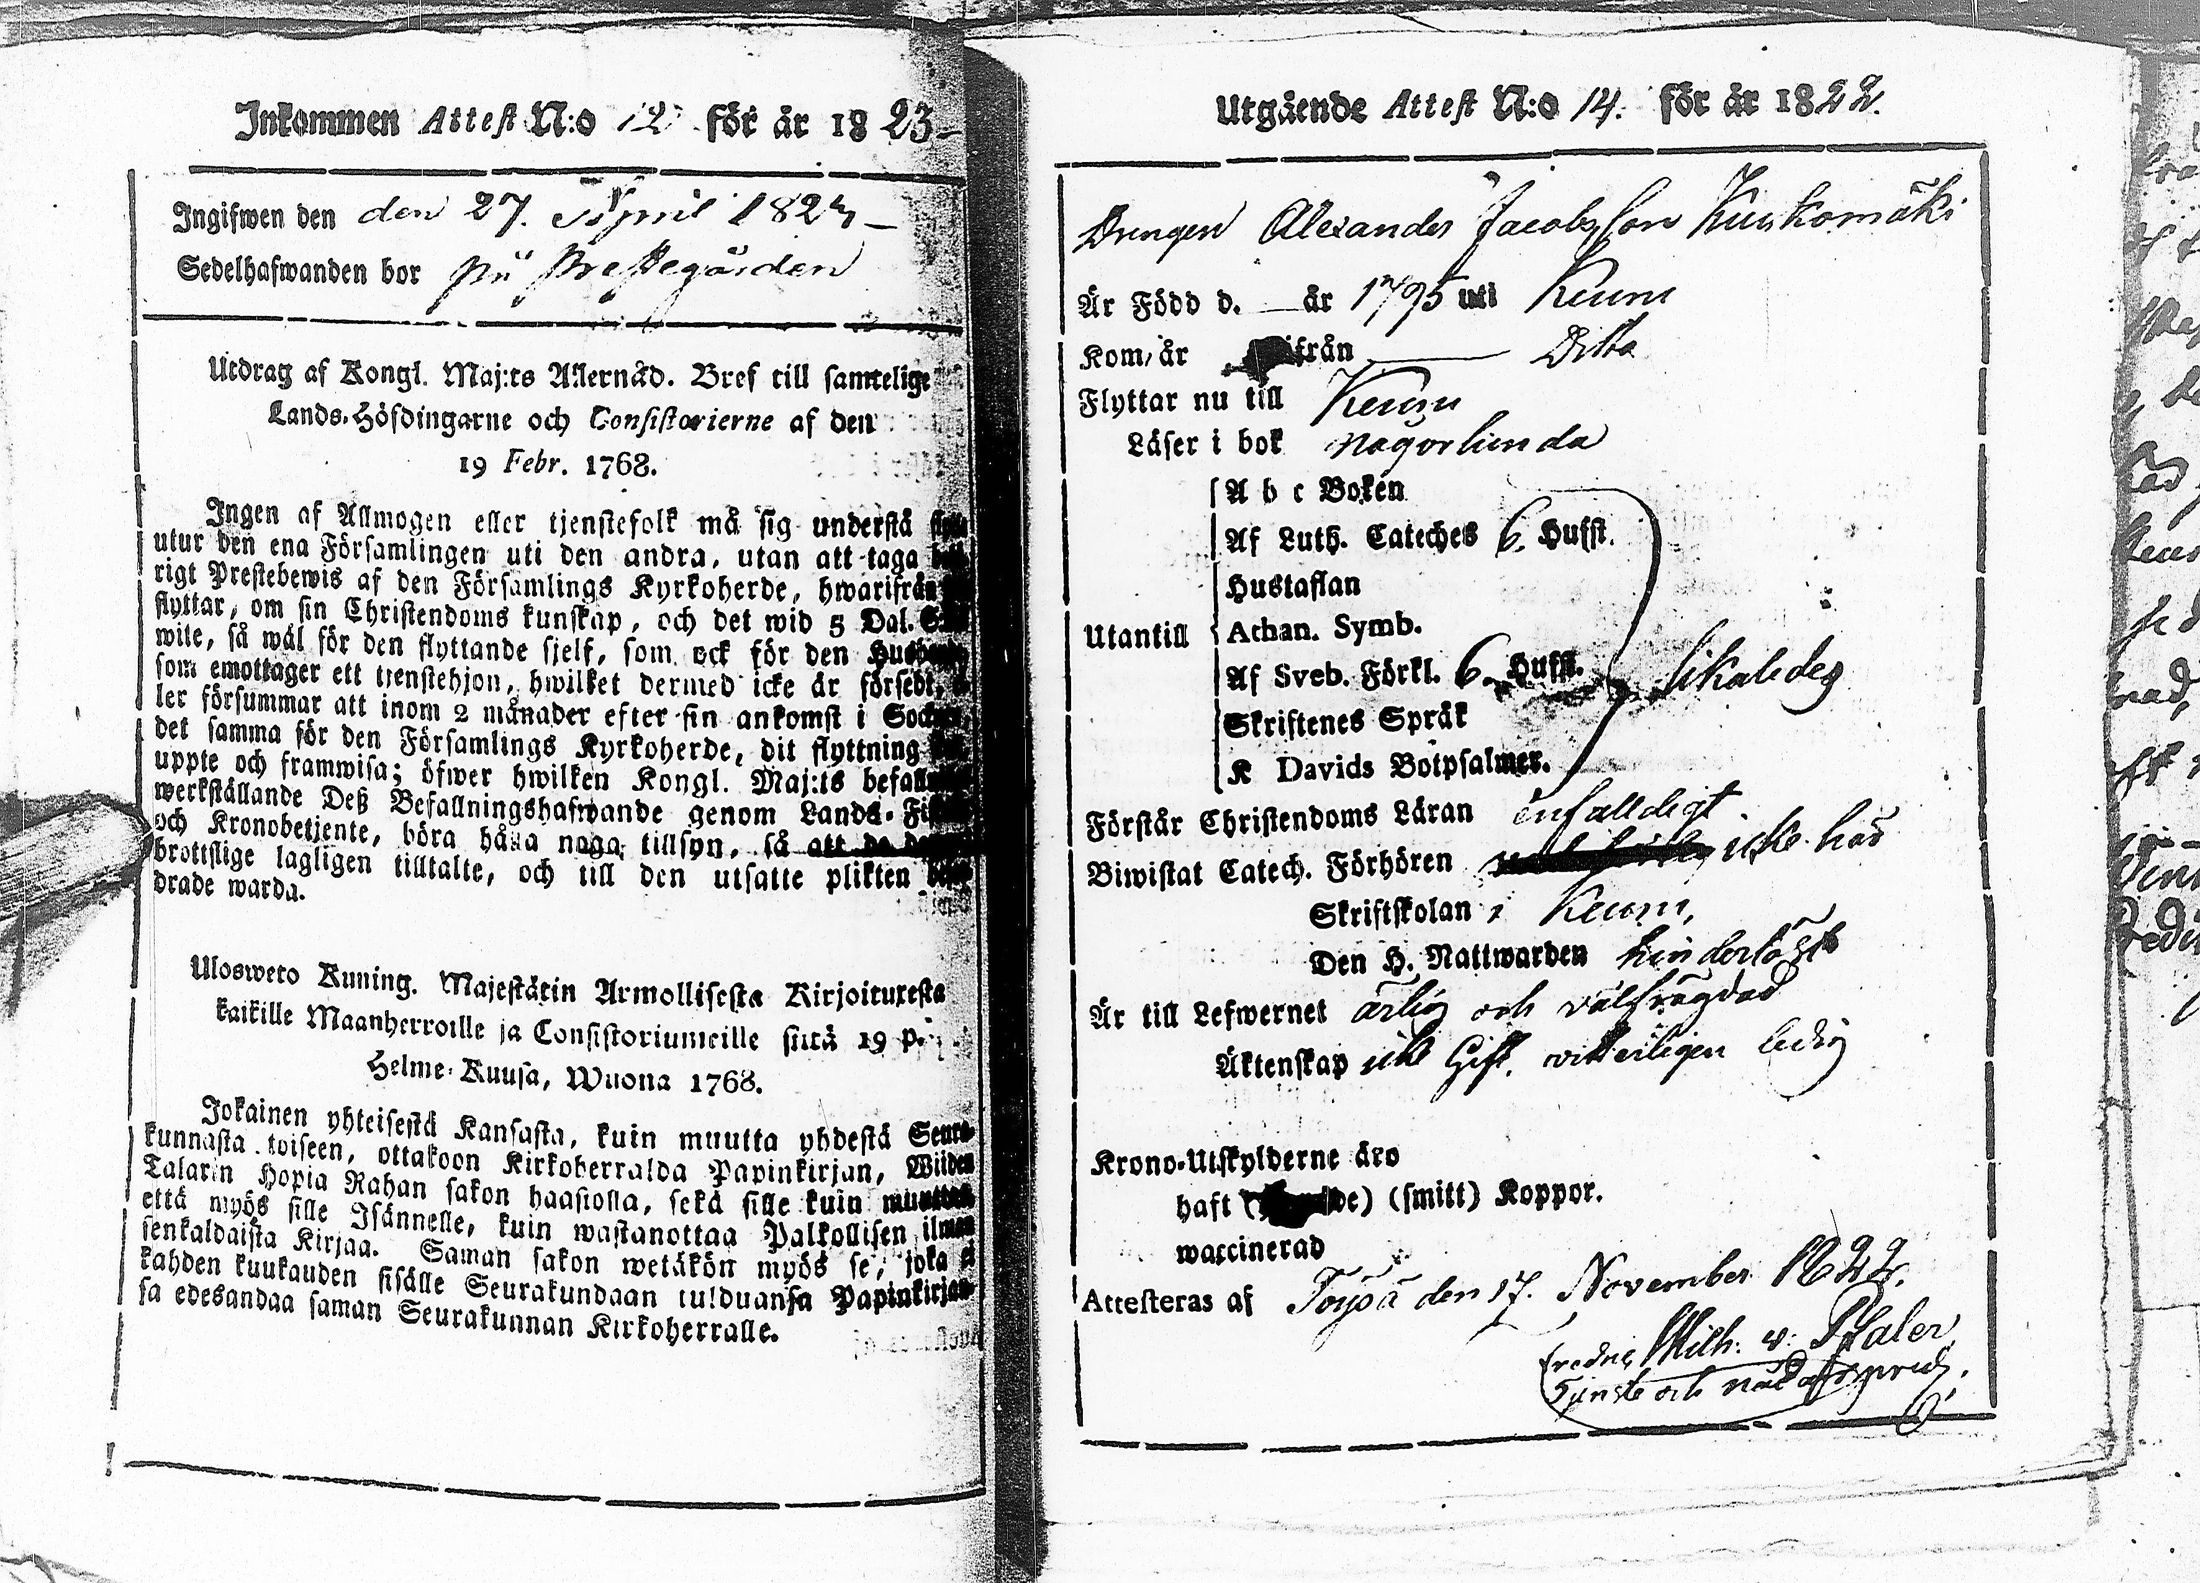 Inkommen Attest N:o 12 för år 1823
Ingifwen den den 27. April 1823
Sedelhafwanden bor på Prestegården
Utdrag af Kongl. Maj:ts Allernåd. Bref till samtelige
Lands-Höfdingarne och Consistorierne af den
19 Febr. 1768.
Ingen af Allmogen eller tjenstefolk må sig understå
utur den ena Församlingen uti den andra, utan att taga
rigt Prestebewis af den Församlings Kyrkoherde, hwarifrån
flyttar, om sin Christendoms kunskap, och det wid 5 Dal.
wite, så wäl för den flyttande sjelf, som ock för den
som emottager ett tjenstehjon, hwilket dermed icke är försedt,
ler försummar att inom 2 månader efter sin ankomst i
det samma för den Församlings Kyrkoherde, dit flyttning
uppte och framwisa; öfwer hwilken Kongl. Maj:ts
werkställande Deß Befallningshafwande genom Lands-
och Kronobetjente, böra hålla noga tillsyn, så att
brottslige lagligen tilltalte, och till den utsatte plikten
drade warda.
Ulosweto Kuning. Majestätin Armollisesta Kirjoituxesta
kaikille Maanherroille ja Consistoriumeille siitä 19 p.
Helme-Kuusa, Wuona 1768.
Jokainen yhteisestä Kansasta, kuin muutta yhdestä Seura-
kunnasta toiseen, ottakoon Kirkoherralda Papinkirjan, Wiiden
Talarin Hopia Rahan sakon haastolla, sekä sille kuin muuttaa
että myös sille Isännelle, kuin wastanottaa Palkollisen ilman
senkaldaista Kirjaa. Saman sakon wetäkön myös se, joka ei
kahden kuukauden sisälle Seurakundaan tulduansa Papinkirjan-
sa edesandaa saman Seurakunnan Kirkoherralle.
Utgående Attest N:o 14. för år 1822.
Drengen Alexander Jacobsson Kuukomäki
Är Född d. — år 1795 uti Keuru
Kom, år ifrån — Ditto
Flyttar nu till Keuru
Läser i bok någorlunda
A b c Boken
Af Luth. Cateches 6. Hufst.
Hustaflan
Utantill Athan. Symb.
Af Sveb. Förkl. 6. Hufst. likaledes
Skriftenes Språk
K Davids Botpsalmer.
Förstår Christendoms Läran enfalldigt.
Biwistat Catech. Förhören icke här
Skriftskolan i Keuru,
Den H. Nattwarden hinderlöst
Är till Lefwernet ärlig och välfrägdad
Äktenskap icke Gift, ledig
Krono-Utskylderne äro
haft (smitt) Koppor.
waccinerad
Attesteras af Töysä den 17. November 1822.
Fredric Wilh. v: Pfaler